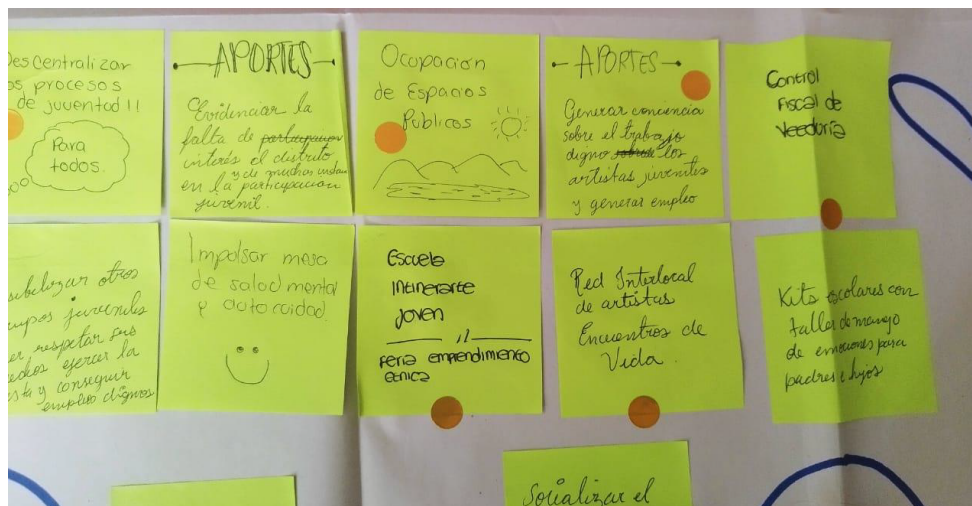 Descentralizar
os procesos
de juventud !!
Para
todos.
APORTES
Evidenciar la
falta de participacion
interés el distrito
y de muchas
en la participacion
juvenil.
Ocupación
de Espacios
Públicos
APORTES
Generar conciencia
sobre el trabajo
digno los
artistas juveniles
y generar empleo
Control
Fiscal de
Veeduría
otros
juveniles
respetar sus
ejercer la
sta y conseguir
empleos dignos
Impulsar mesa
de salud mental
y auto cuidado.
Escuela
Intinerante
Joven
Feria emprendimiento
etnica
Red Interlocal
de artistas
Encuentros de
Vida.
Kits escolares con
taller de manejo
de emociones para
padres e hijos
Socializar el